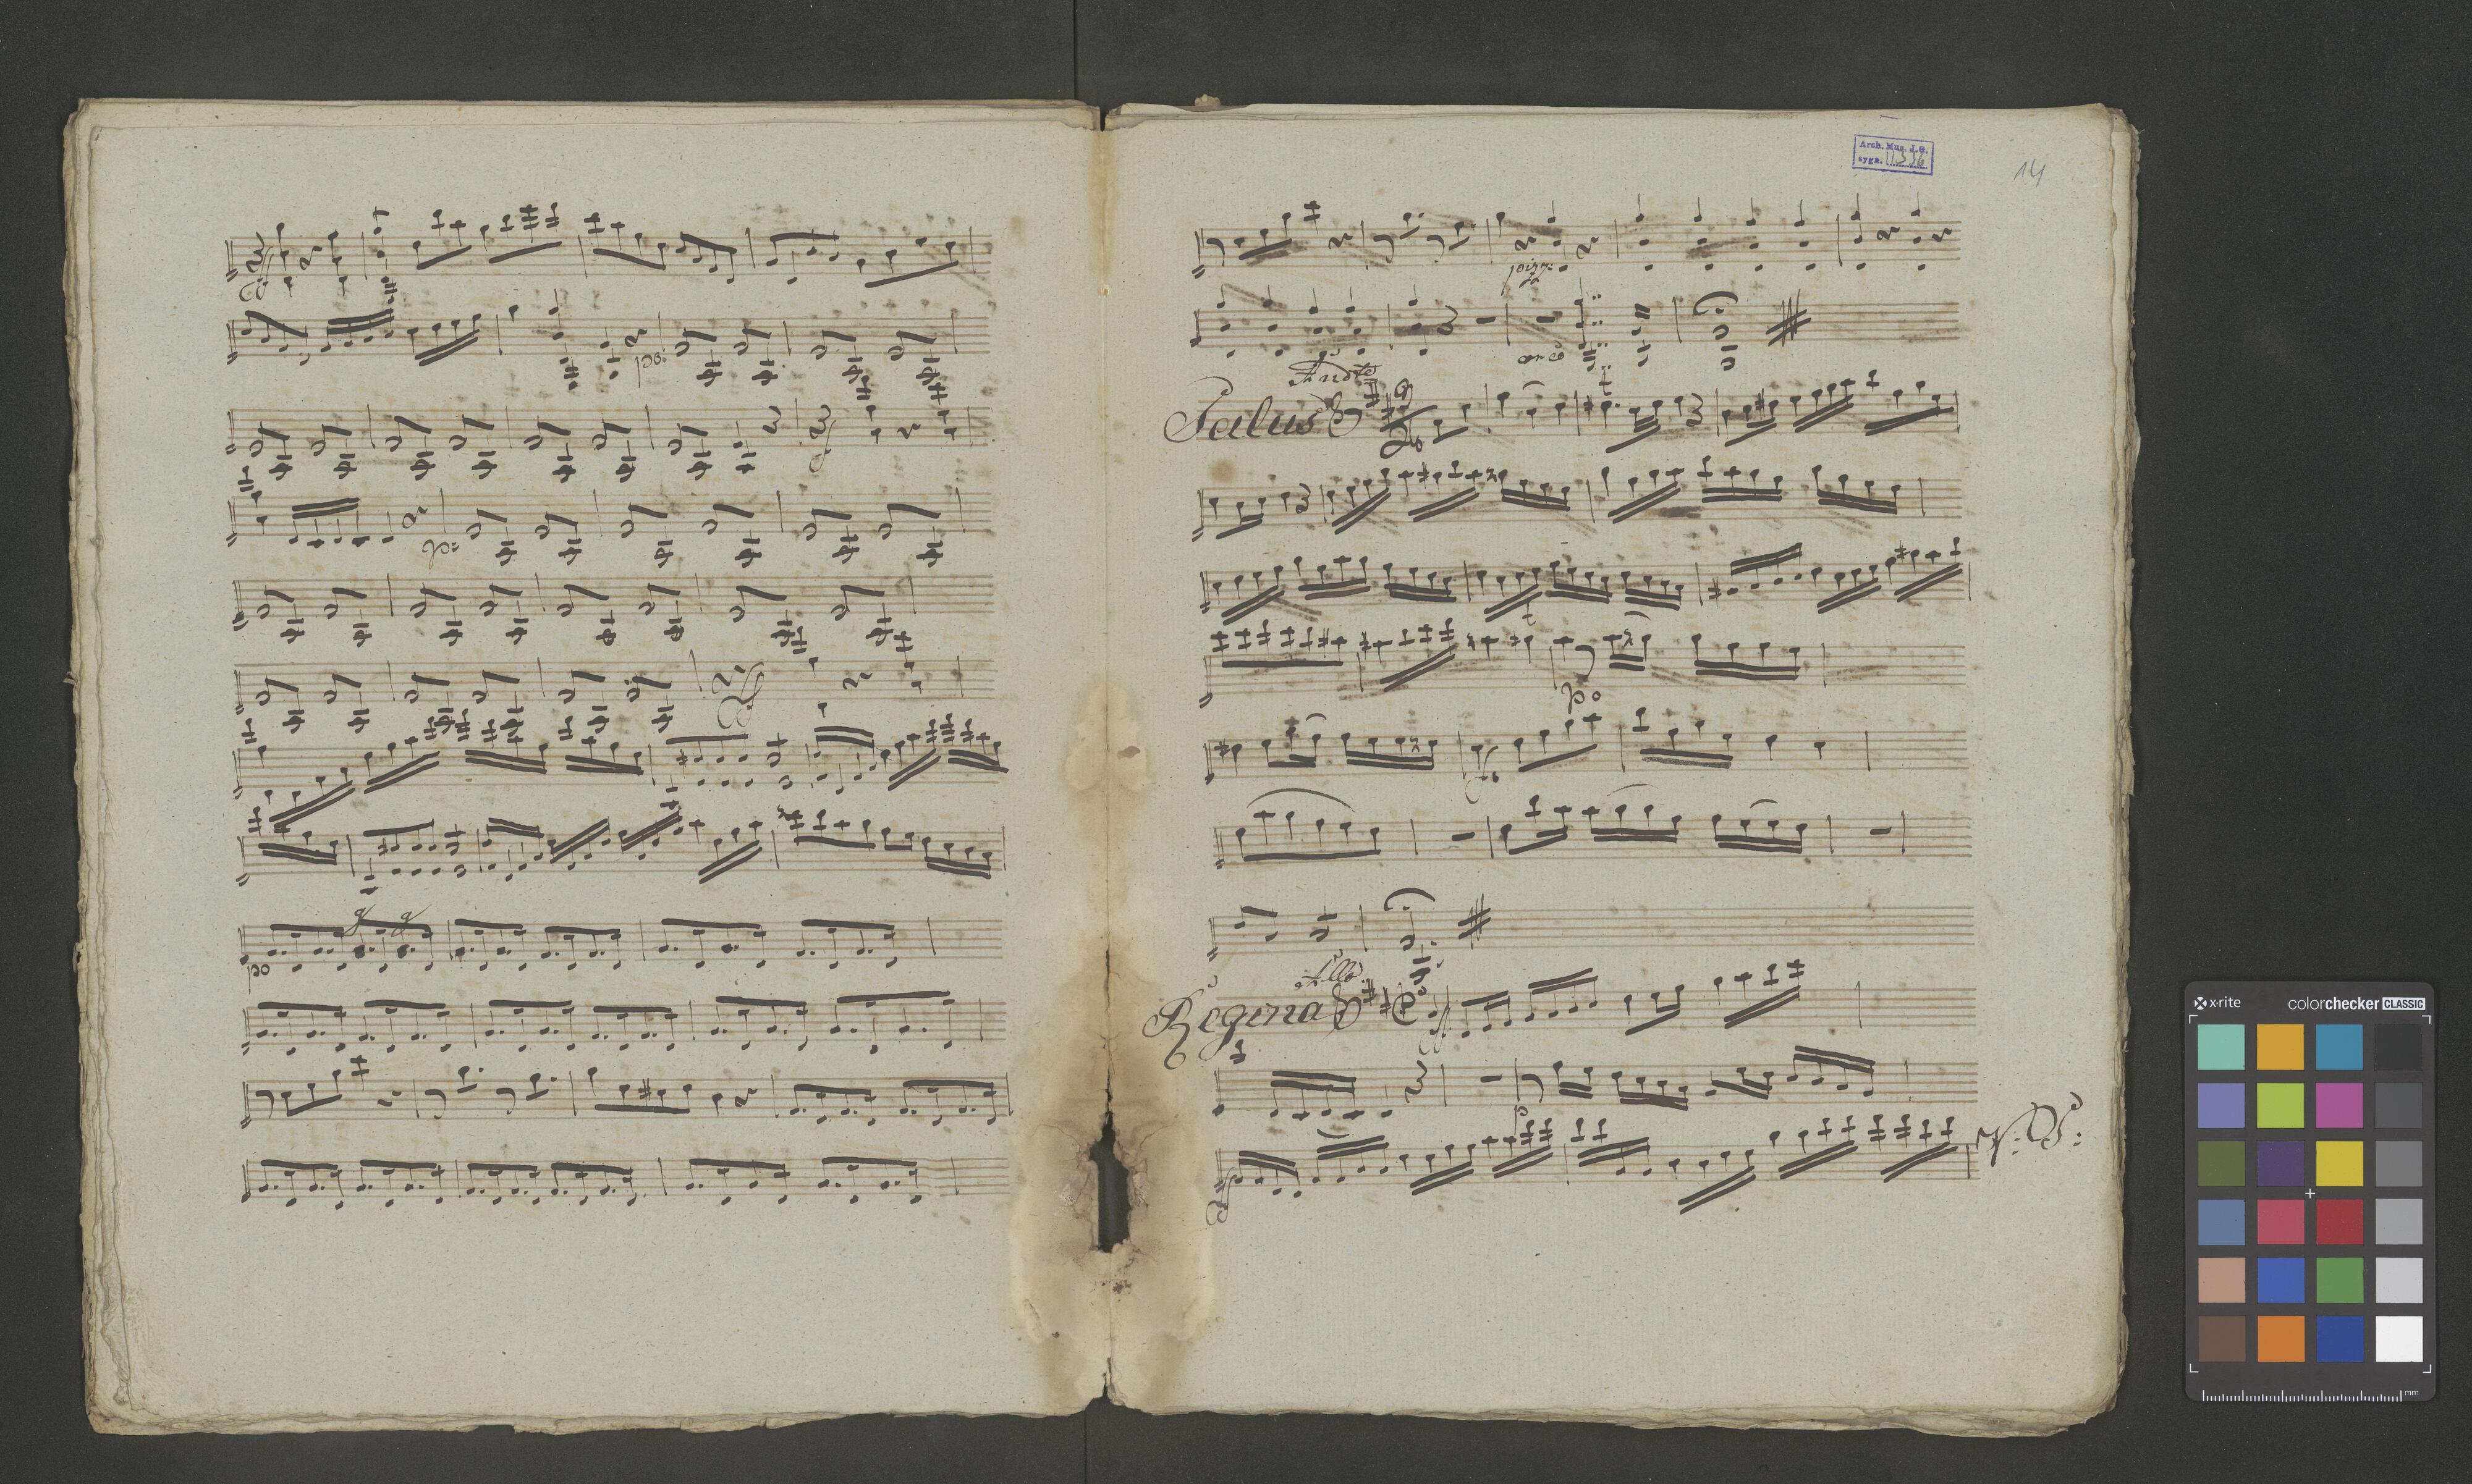 po:
p:
po
q q
Arch. Mus. J.G.
sygn. 11336
14
pizz:
arco
Andte
Salus
po
Allo
Regina
p
V: S:
x-rite colorchecker CLASSIC
mm